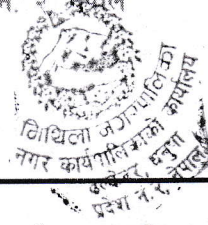 मिथिला नगरपालिका
नगर कार्यपालिकाको कार्यालय
धनुषा
प्रदेश नं. २, नेपाल